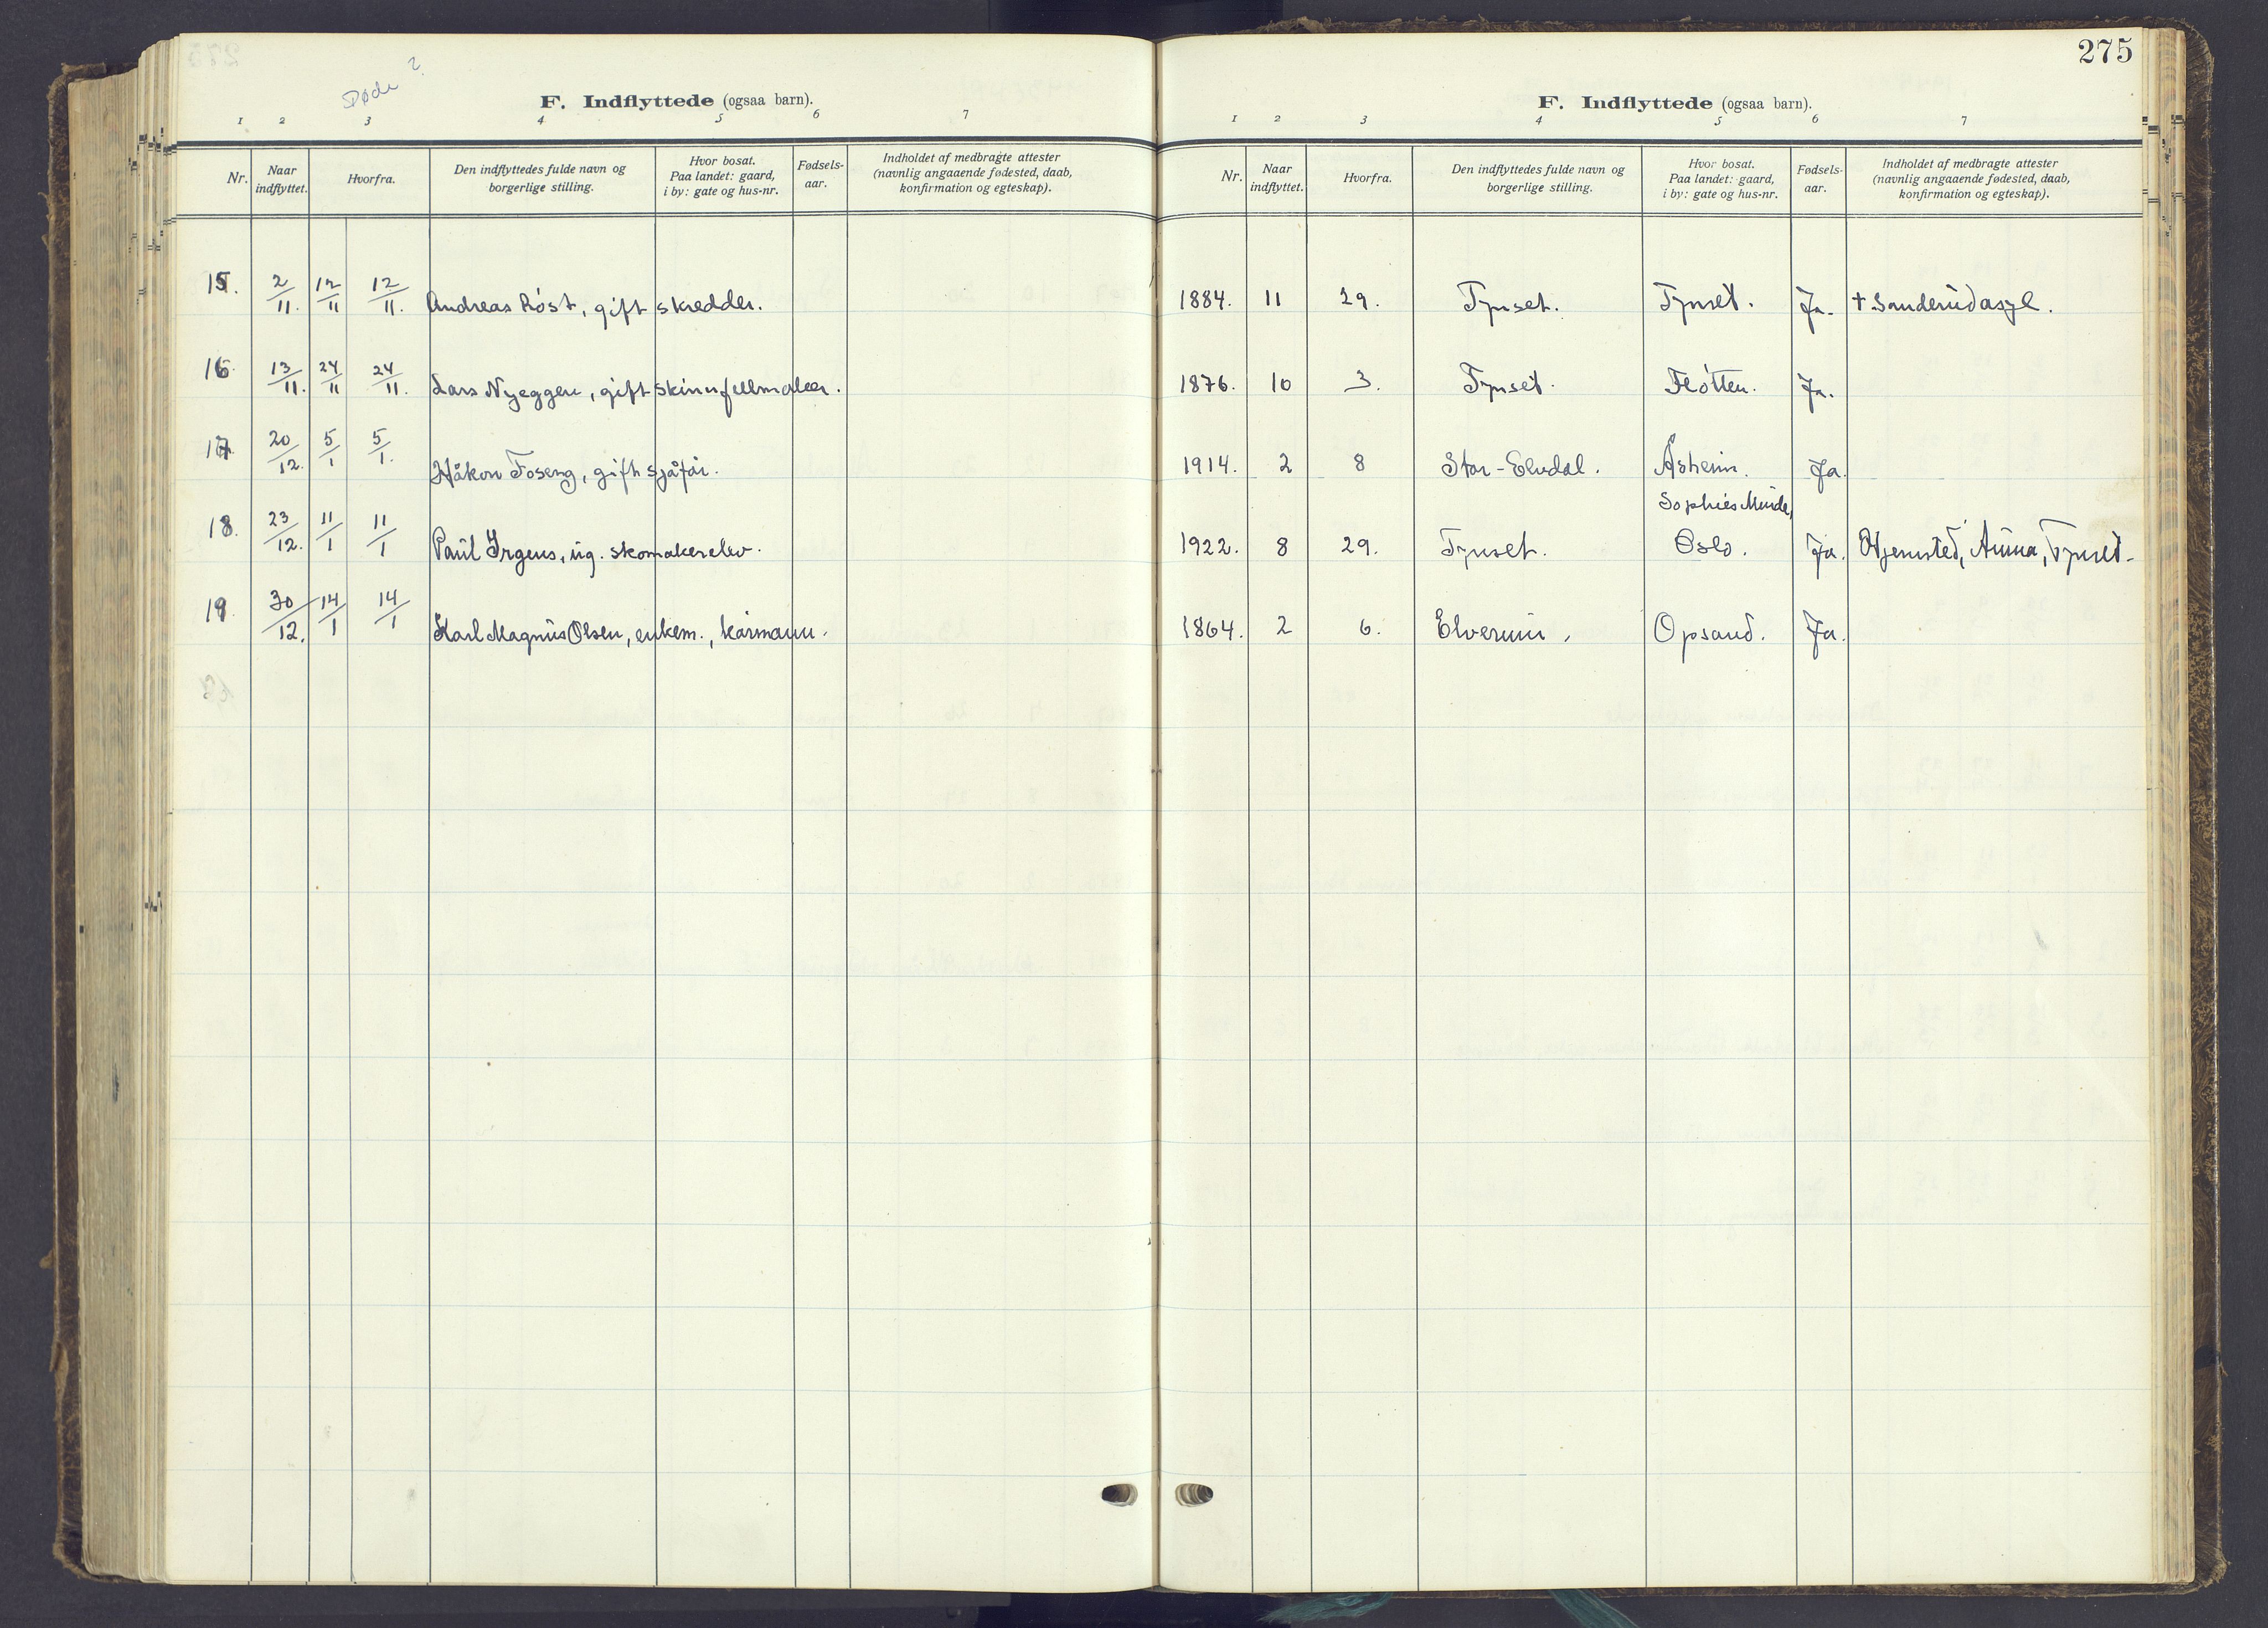 275
Døde ?
F. Indflyttede (ogsaa barn).
1 2 3 4 5 6 7
Nr.
Naar indflyttet.
Hvorfra.
Den indflyttedes fulde navn og borgerlige stilling.
Hvor bosat. Paa landet: gaard, i by: gate og hus-nr.
Fødsels-aar.
Indholdet af medbragte attester (navnlig angaaende fødested, daab, konfirmation og egteskap).
F. Indflyttede (ogsaa barn).
1 2 3 4 5 6 7
Nr.
Naar indflyttet.
Hvorfra.
Den indflyttedes fulde navn og borgerlige stilling.
Hvor bosat. Paa landet: gaard, i by: gate og hus-nr.
Fødsels-aar.
Indholdet af medbragte attester (navnlig angaaende fødested, daab, konfirmation og egteskap).
15. 2/11. 12/11 12/11. Andreas Røst, gift skredder. 1884. 11 29. Tynset. Tynset. Ja. + Sanderud asyl.
16 13/11. 24/11 24/11. Lars Nyeggen, gift skinnfellmaker. 1876. 10 3. Tynset. Fløtten. Ja.
17 20/12. 5/1 5/1. Håkon Foseng, gift sjåfør. 1914. 2 8 Stor-Elvdal. Åsheim. Ja.
18. 23/12. 11/1 11/1 Paul Irgens, ug. skomakerelev. 1922. 8 29. Tynset. Sophies Minde, Oslo. Ja. Hjemsted, Auma, Tynset.
19. 30/12. 14/1 14/1 Karl Magnus Olsen, enkem., kårmann. 1864. 2 6. Elverum. Opsand. Ja.